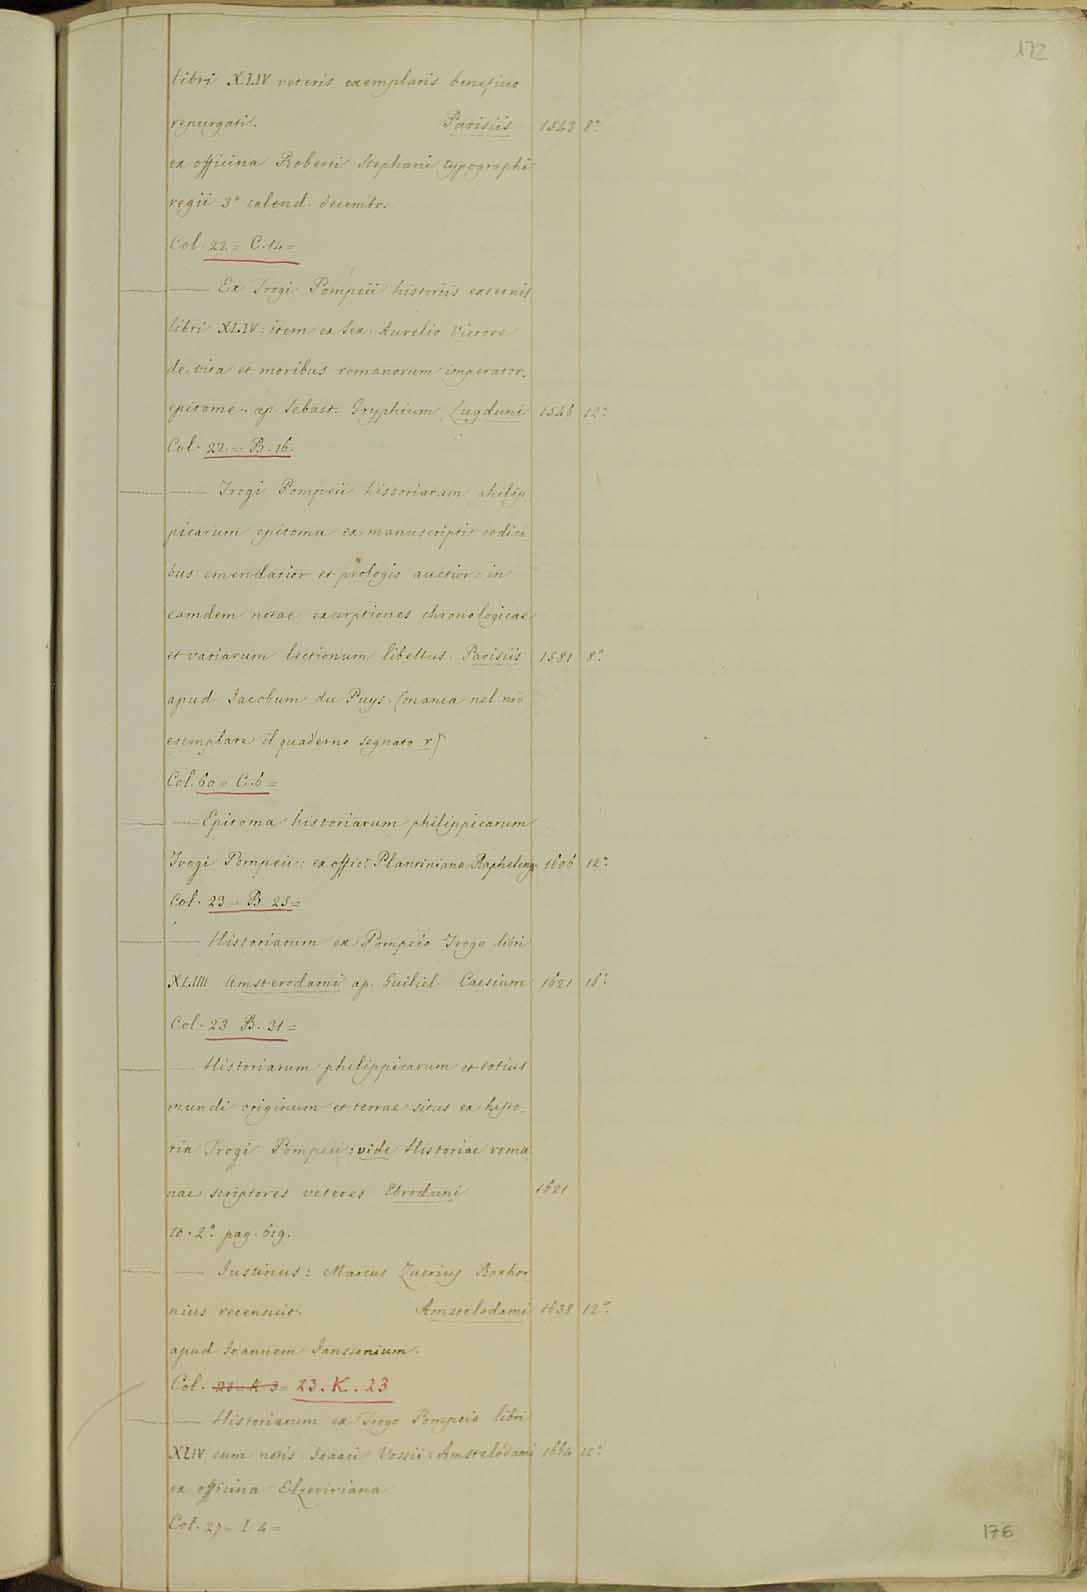 172
libri XLIV veteris exemplaris beneficio
repurgati. Parisiis 1543 8º
ex officina Roberti Stephani typographi
regii 3º calend. decembr.
Col. 22 = C. 14 =
— Ex Trogi Pompeii historiis externis
libri XLIV: item ex Sex. Aurelio Victore
de vita et moribus romanorum imperator.
epitome. ap. Sebast. Gryphium Lugduni 1548 12º
Col. 22 = B. 16.
— Trogi Pompeii historiarum philip
picarum epitoma ex manuscriptis codici
bus emendatior et prologis auctior: in
eamdem notae excerptiones chronologicae
et variarum lectionum libellus. Parisiis 1581 8º
apud Jacobum du Puys. (manca nel nrō
esemplare il quaderno segnato r)
Col. 60 = C. 6 =
— Epitoma historiarum philippicarum
Trogi Pompeii: ex offic. Plantiniana Rapheleng. 1606 12º
Col. 23 = B 23 =
— Historiarum ex Pompeio Trogo libri
XLIIII Amsterodami ap. Guiliel. Caesium 1621 16º
Col. 23 B. 31 =
— Historiarum philippicarum et totius
mundi originum et terrae situs ex histo-
ria Trogi Pompeii: vide Historiae roma
nae scriptores veteres Ebroduni 1621
to. 2º pag. 619.
— Justinus: Marcus Zuerius Boxhor
nius recensuit. Amstelodami 1638 12º
apud Joannem Janssonium.
Col. 23 = K. 3 = 23. K. 23
— Historiarum ex Trogo Pompeio libri
XLIV cum notis Isaaci Vossii: Amstelodami 1664 12º
ex officina Elzeviriana
Col. 27 = I 4 =
176